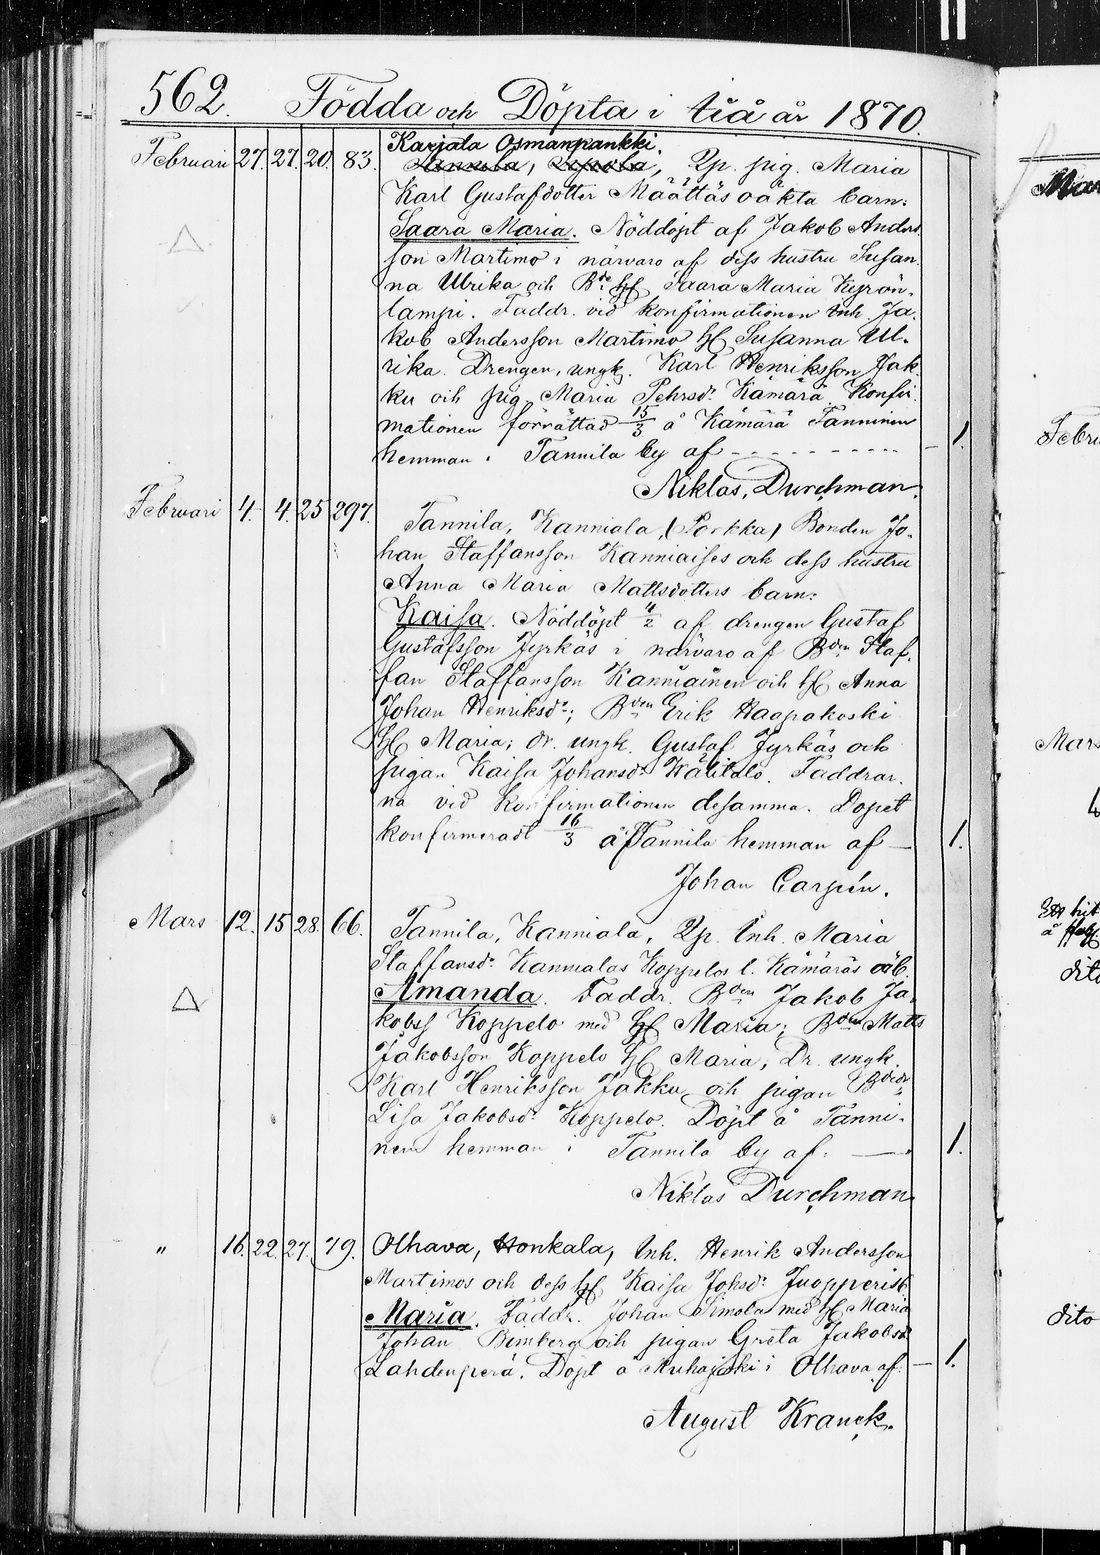 562. Födda och Döpta i Iiå år 1870.
Karjala Osmanpankki.
Februari 27. 27. 20. 83. Pp. pig. Maria
Karl Gustafdotter Määttäs oäkta barn:
Saara Maria. Nöddöpt af Jakob Anders
son Martimo i närvaro af dess hustru Susan
na Ulrika och Bde H Saara Maria Kyrön-
lampi. Faddr. vid konfirmationen Inh. Ja-
kob Andersson Martimo H Susanna Ul-
rika. Drengen, ungk. Karl Henriksson Jak-
ku och pig. Maria Pehrsdr Kämärä. Konfir-
mationen förrättad 15/3 å Kämärä Tanninen
hemman i Tannila by af - 1.
Niklas Durchman.
Februari 4. 4. 25 297. Tannila, Kanniala, (Porkka) Bonden Jo-
han Staffansson Kanniaises och dess hustru
Anna Maria Mattsdotters barn:
Kaisa. Nöddöpt 4/2 af drengen Gustaf
Gustafsson Jyrkäs i närvaro af Bden Staf-
fan Staffansson Kanniainen och H Anna
Johan Henriksdr; Bden Erik Haapakoski
H Maria; dr. ungk. Gustaf Jyrkäs och
pigan Kaisa Johansdr Wälitalo. Faddrar-
na vid konfirmationen desamma. Dopet
konfirmeradt 16/3 å Tannila hemman af — 1.
Johan Carpén.
Mars 12. 15 28. 66. Tannila, Kanniala, Pp. Inh. Maria
Staffansdr Kannialas Koppelos l. Kämäräs oäb.
Amanda. Faddr. Bden Jakob Ja-
kobss Koppelo med H Maria; Bden Matts
Jakobsson Koppelo H Maria, Dr. ungk.
Karl Henriksson Jakku och pigan Bdedr
Lisa Jakobsdr Koppelo. Döpt å Tanni-
nen hemman i Tannila by af. — 1.
Niklas Durchman
" 16. 22. 27. 79. Olhava, Honkala, Inh. Henrik Andersson
Martimos och dess H Kaisa Johsdr
Maria. Faddr. Johan Simola med H Maria
Johan och pigan Greta Jakobsdr
Lahdenperä. Döpt å i Olhava af — 1.
August Kranck.
Februari
Mars
dito
dito